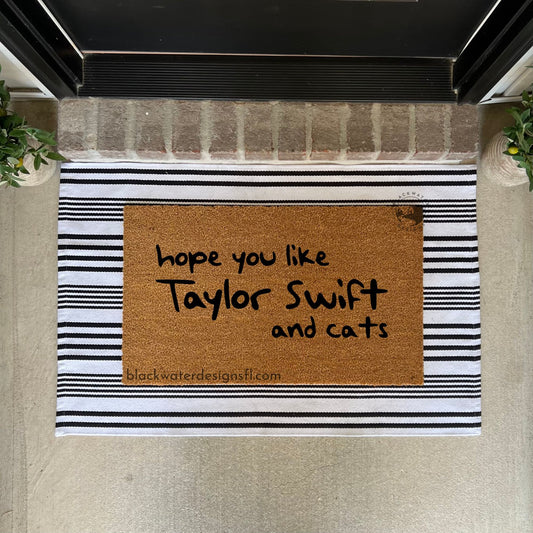 hope you like
Taylor Swift
and cats
blackwaterdesignsfl.com